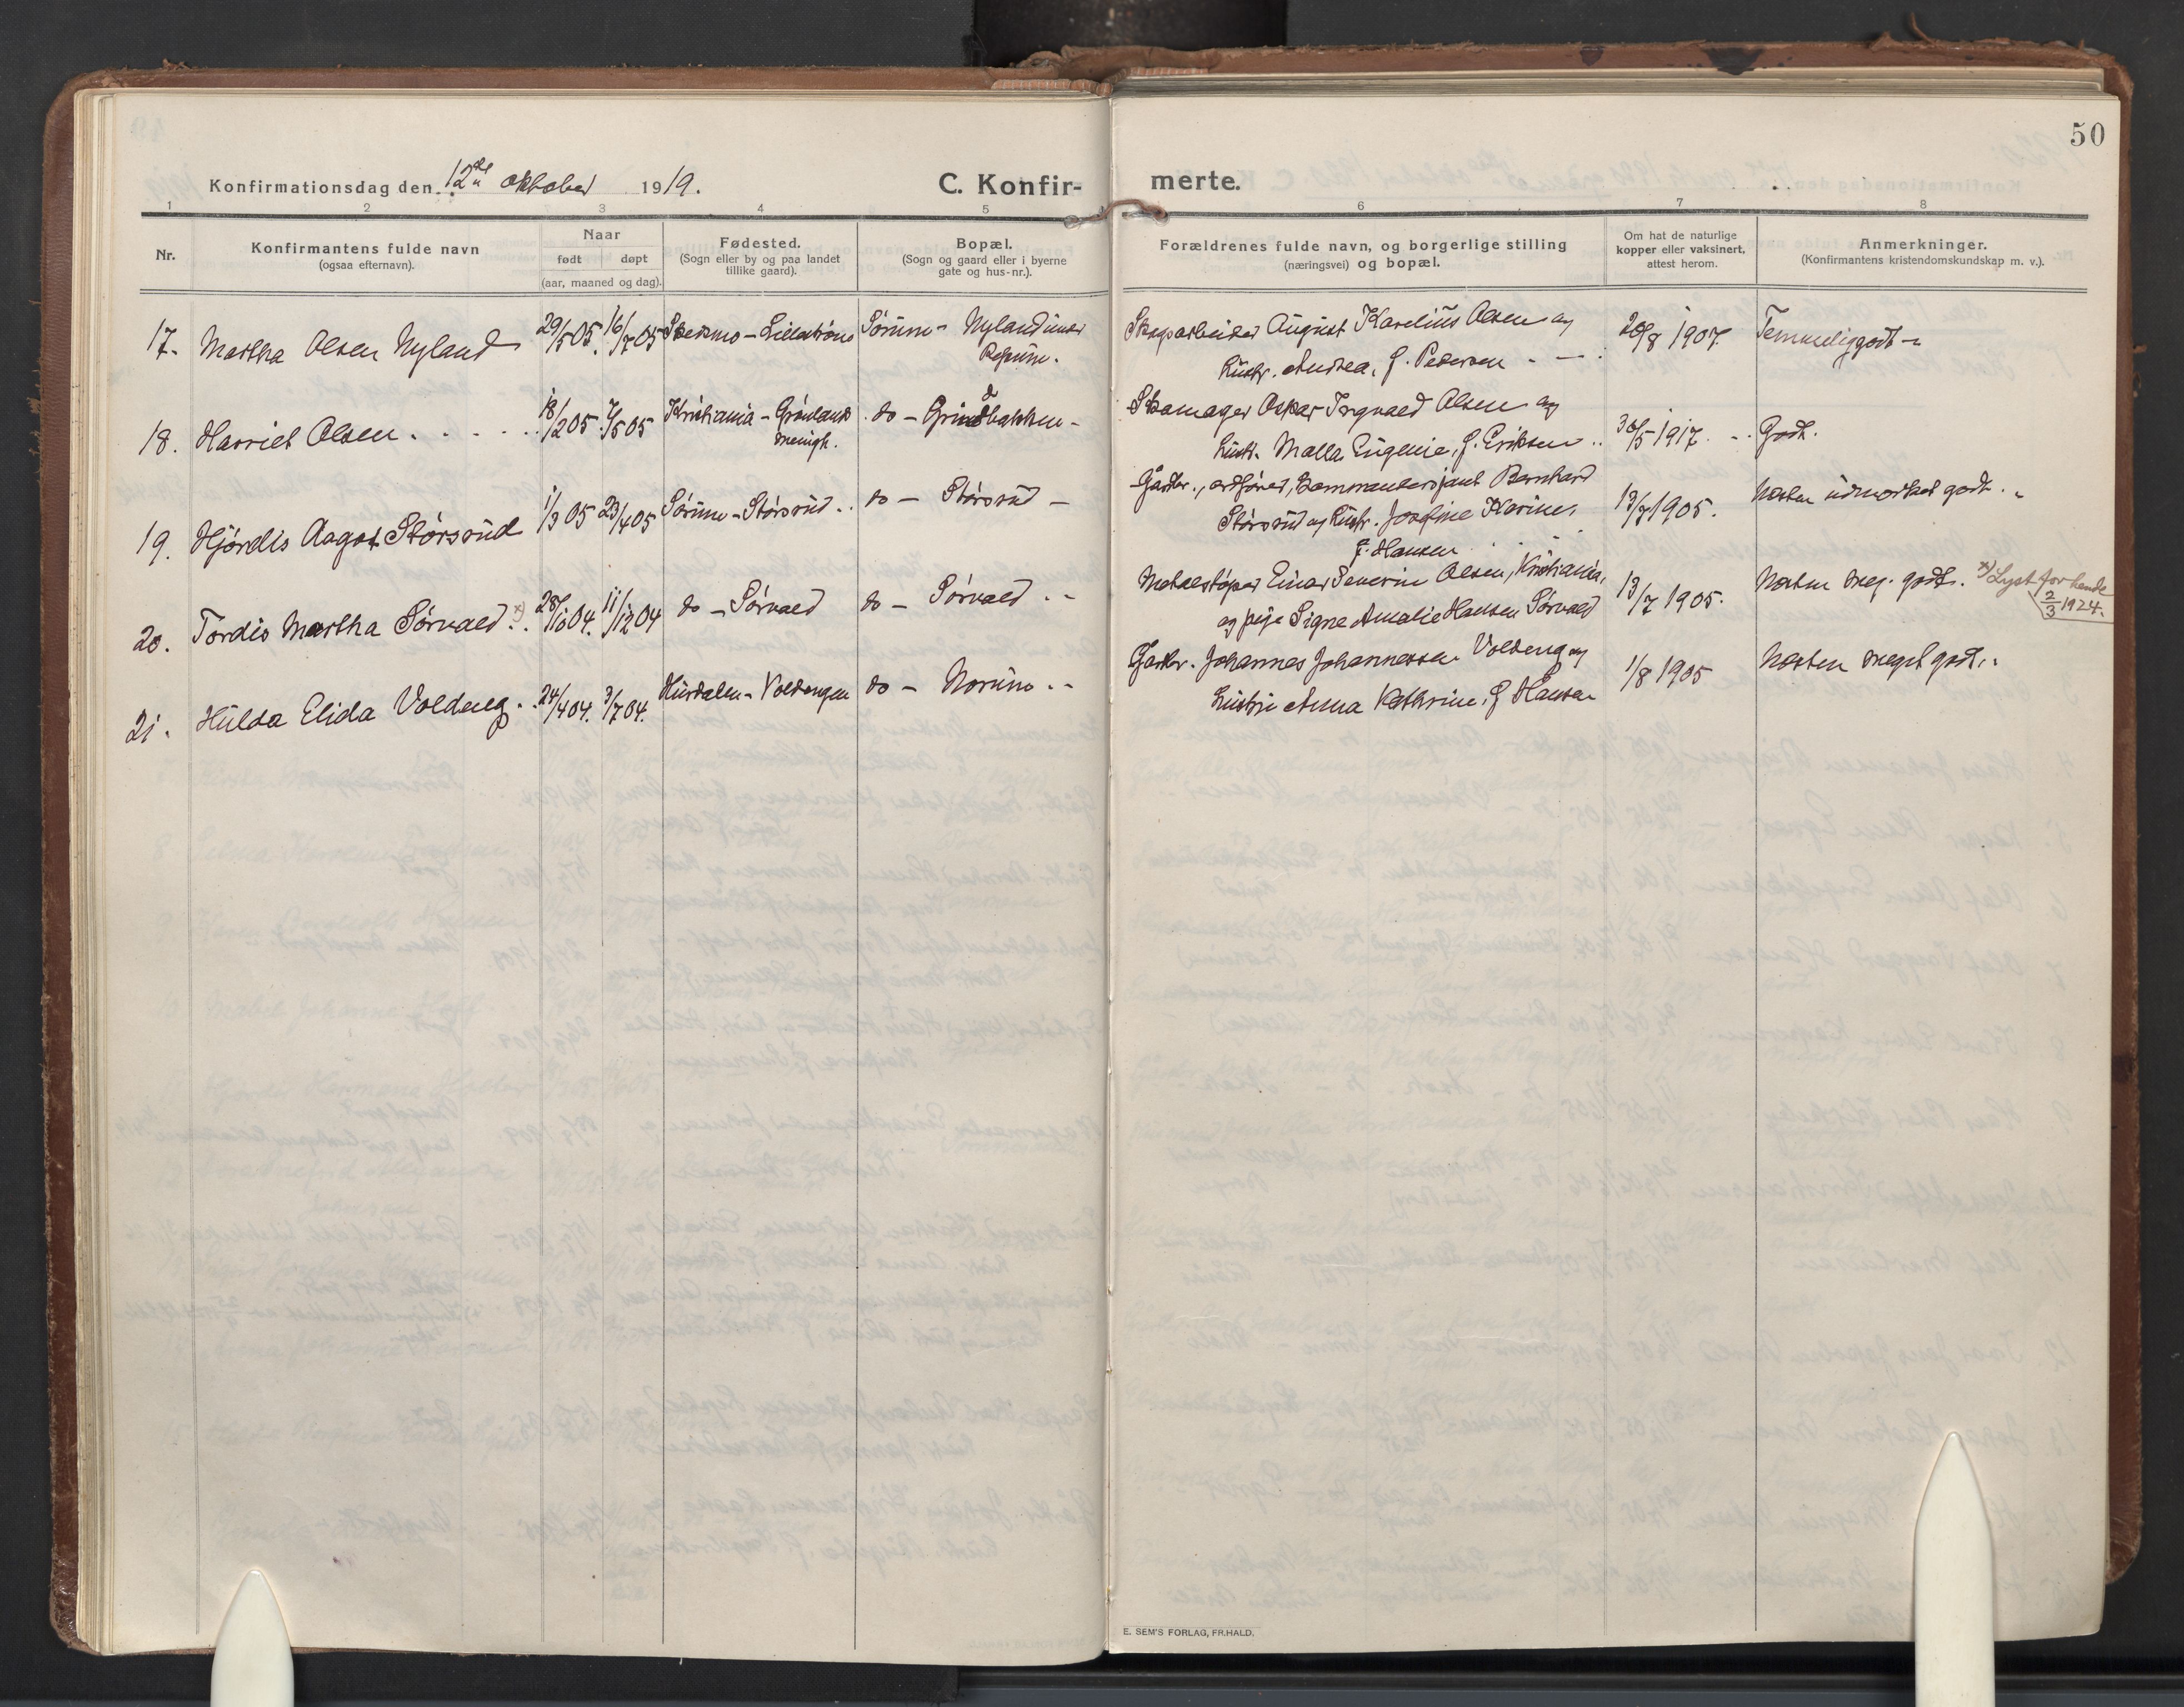 50
Konfirmationsdag den 12te oktober 1919.
C. Konfir-
merte.
1 2 3 4 5 6 7 8
Nr.
Konfirmantens fulde navn
(ogsaa efternavn).
Naar
født døpt
(aar, maaned og dag).
Fødested.
(Sogn eller by og paa landet
tillike gaard).
Bopæl.
(Sogn og gaard eller i byerne
gate og hus-nr.).
Forældrenes fulde navn, og borgerlige stilling
(næringsvei) og bopæl.
Om hat de naturlige
kopper eller vaksinert,
attest herom.
Anmerkninger.
(Konfirmantens kristendomskundskap m. v.).
17. Martha Olsen Nyland 29/5 05. 16/7 05 Skedsmo - Lillestrøm Sørum - Nyland under
Refsum.
Skogsarbeider August Karelius Olsen og
hustr. Andrea, f. Pedersen
20/8 1907. Temmelig godt
18. Harriet Olsen 18/2 05 7/5 05 Kristiania - Grønlands
menigh.
do - Grindbakken -
Skomager Oskar Ingvald Olsen og
hustr. Malla Eugenie, f. Eriksen
30/5 1917. Godt.
19. Hjørdis Aagot Størsrud 1/3 05 23/4 05 Sørum - Størsrud do - Størsrud -
Gaardbr., ordfører, kommandersjant Bernhard
Størsrud og hustr. Josefine Karine,
f. Hansen
13/7 1905. Næsten udmerket godt.
20. Tordis Martha Sørvald x) 28/10 04. 11/12 04 do - Sørvald do - Sørvald
Metalstøper Einar Severin Olsen, Kristiania,
og pige Signe Amalie Hansen Sørvald
13/7 1905. Næsten meg. godt. x) Lyst for hende
2/3 1924.
21. Hulda Elida Voldeng 24/4 04. 3/7 04. Hurdalen - Voldengen do - Norum
Gardbr. Johannes Johannessen Voldeng og
hustru Anna Kathrine, f Hansen
1/8 1905 Næsten meget godt
E. SEM'S FORLAG, FR.HALD.